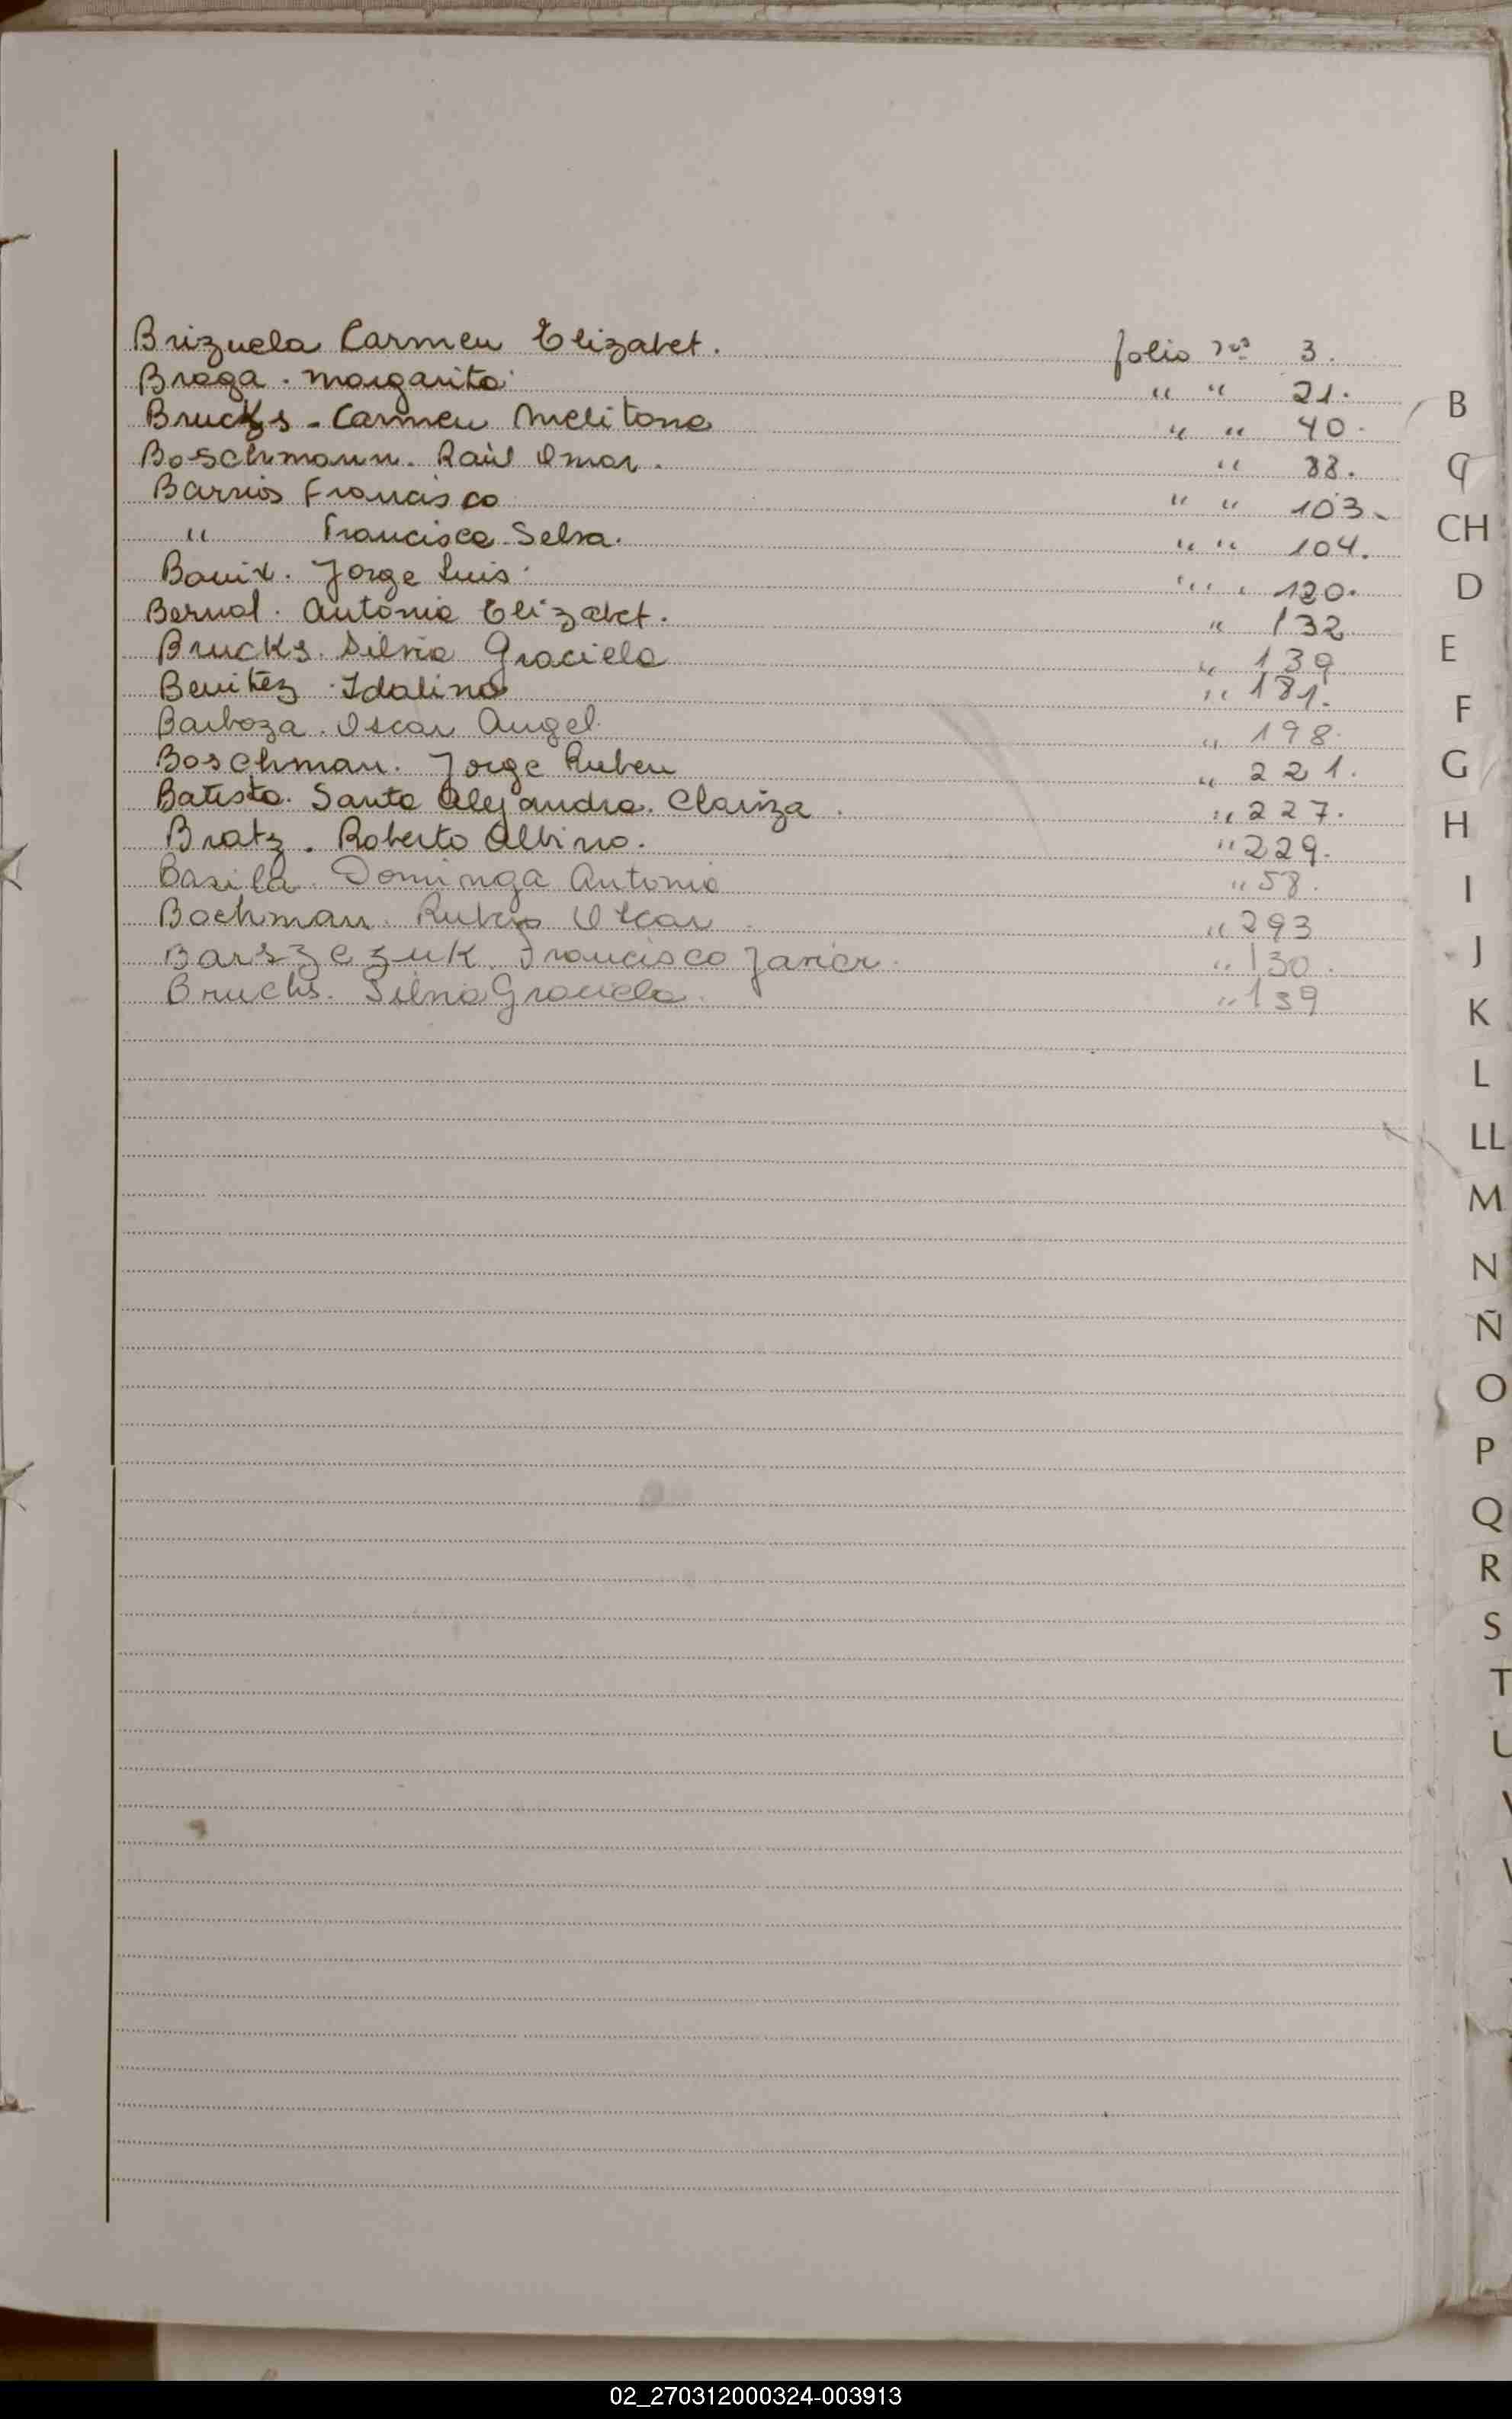 Brizuela Carmen Elizabet. folio nº 3.
Braga. Margarita. " " 21.
Brucks - Carmen Melitona " " 40.
Boschmann. Raúl Omar. " 88.
Barrios Francisco " " 103.
" Francisca Selva. " " 104.
Bouix. Jorge Luis. " " 120.
Bernal. Antonia Elizabet. " 132
Brucks. Silvia Graciela " 139
Benitez. Idalina " 181.
Barboza. Oscar Angel " 198.
Boschman. Jorge Ruben " 221.
Batista. Santa Alejandra. Clariza. " 227.
Bratz. Roberto Albino. " 229.
Dominga Antonia " 58.
Bochman. Oscar " 293
Barszezuk. Francisco Javier. " 130.
Bruchs. Silvia Graciela. " 139
B
C
CH
D
E
F
G
H
I
J
K
L
LL
M
N
Ñ
O
P
Q
R
S
T
U
02_270312000324-003913